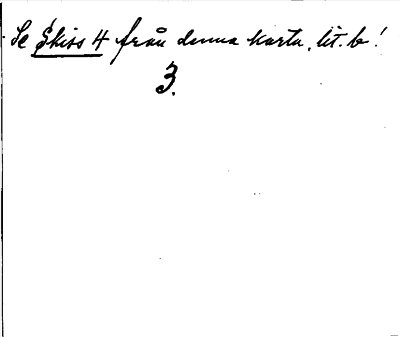 Se Skiss 4 från denna karta, lit. b!
3.